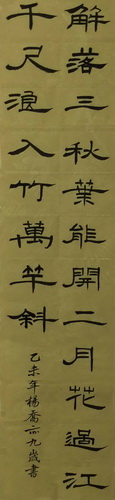 解落三秋葉能開二月花過江
千尺浪入竹萬竿斜
乙未年楊喬亦九歲書